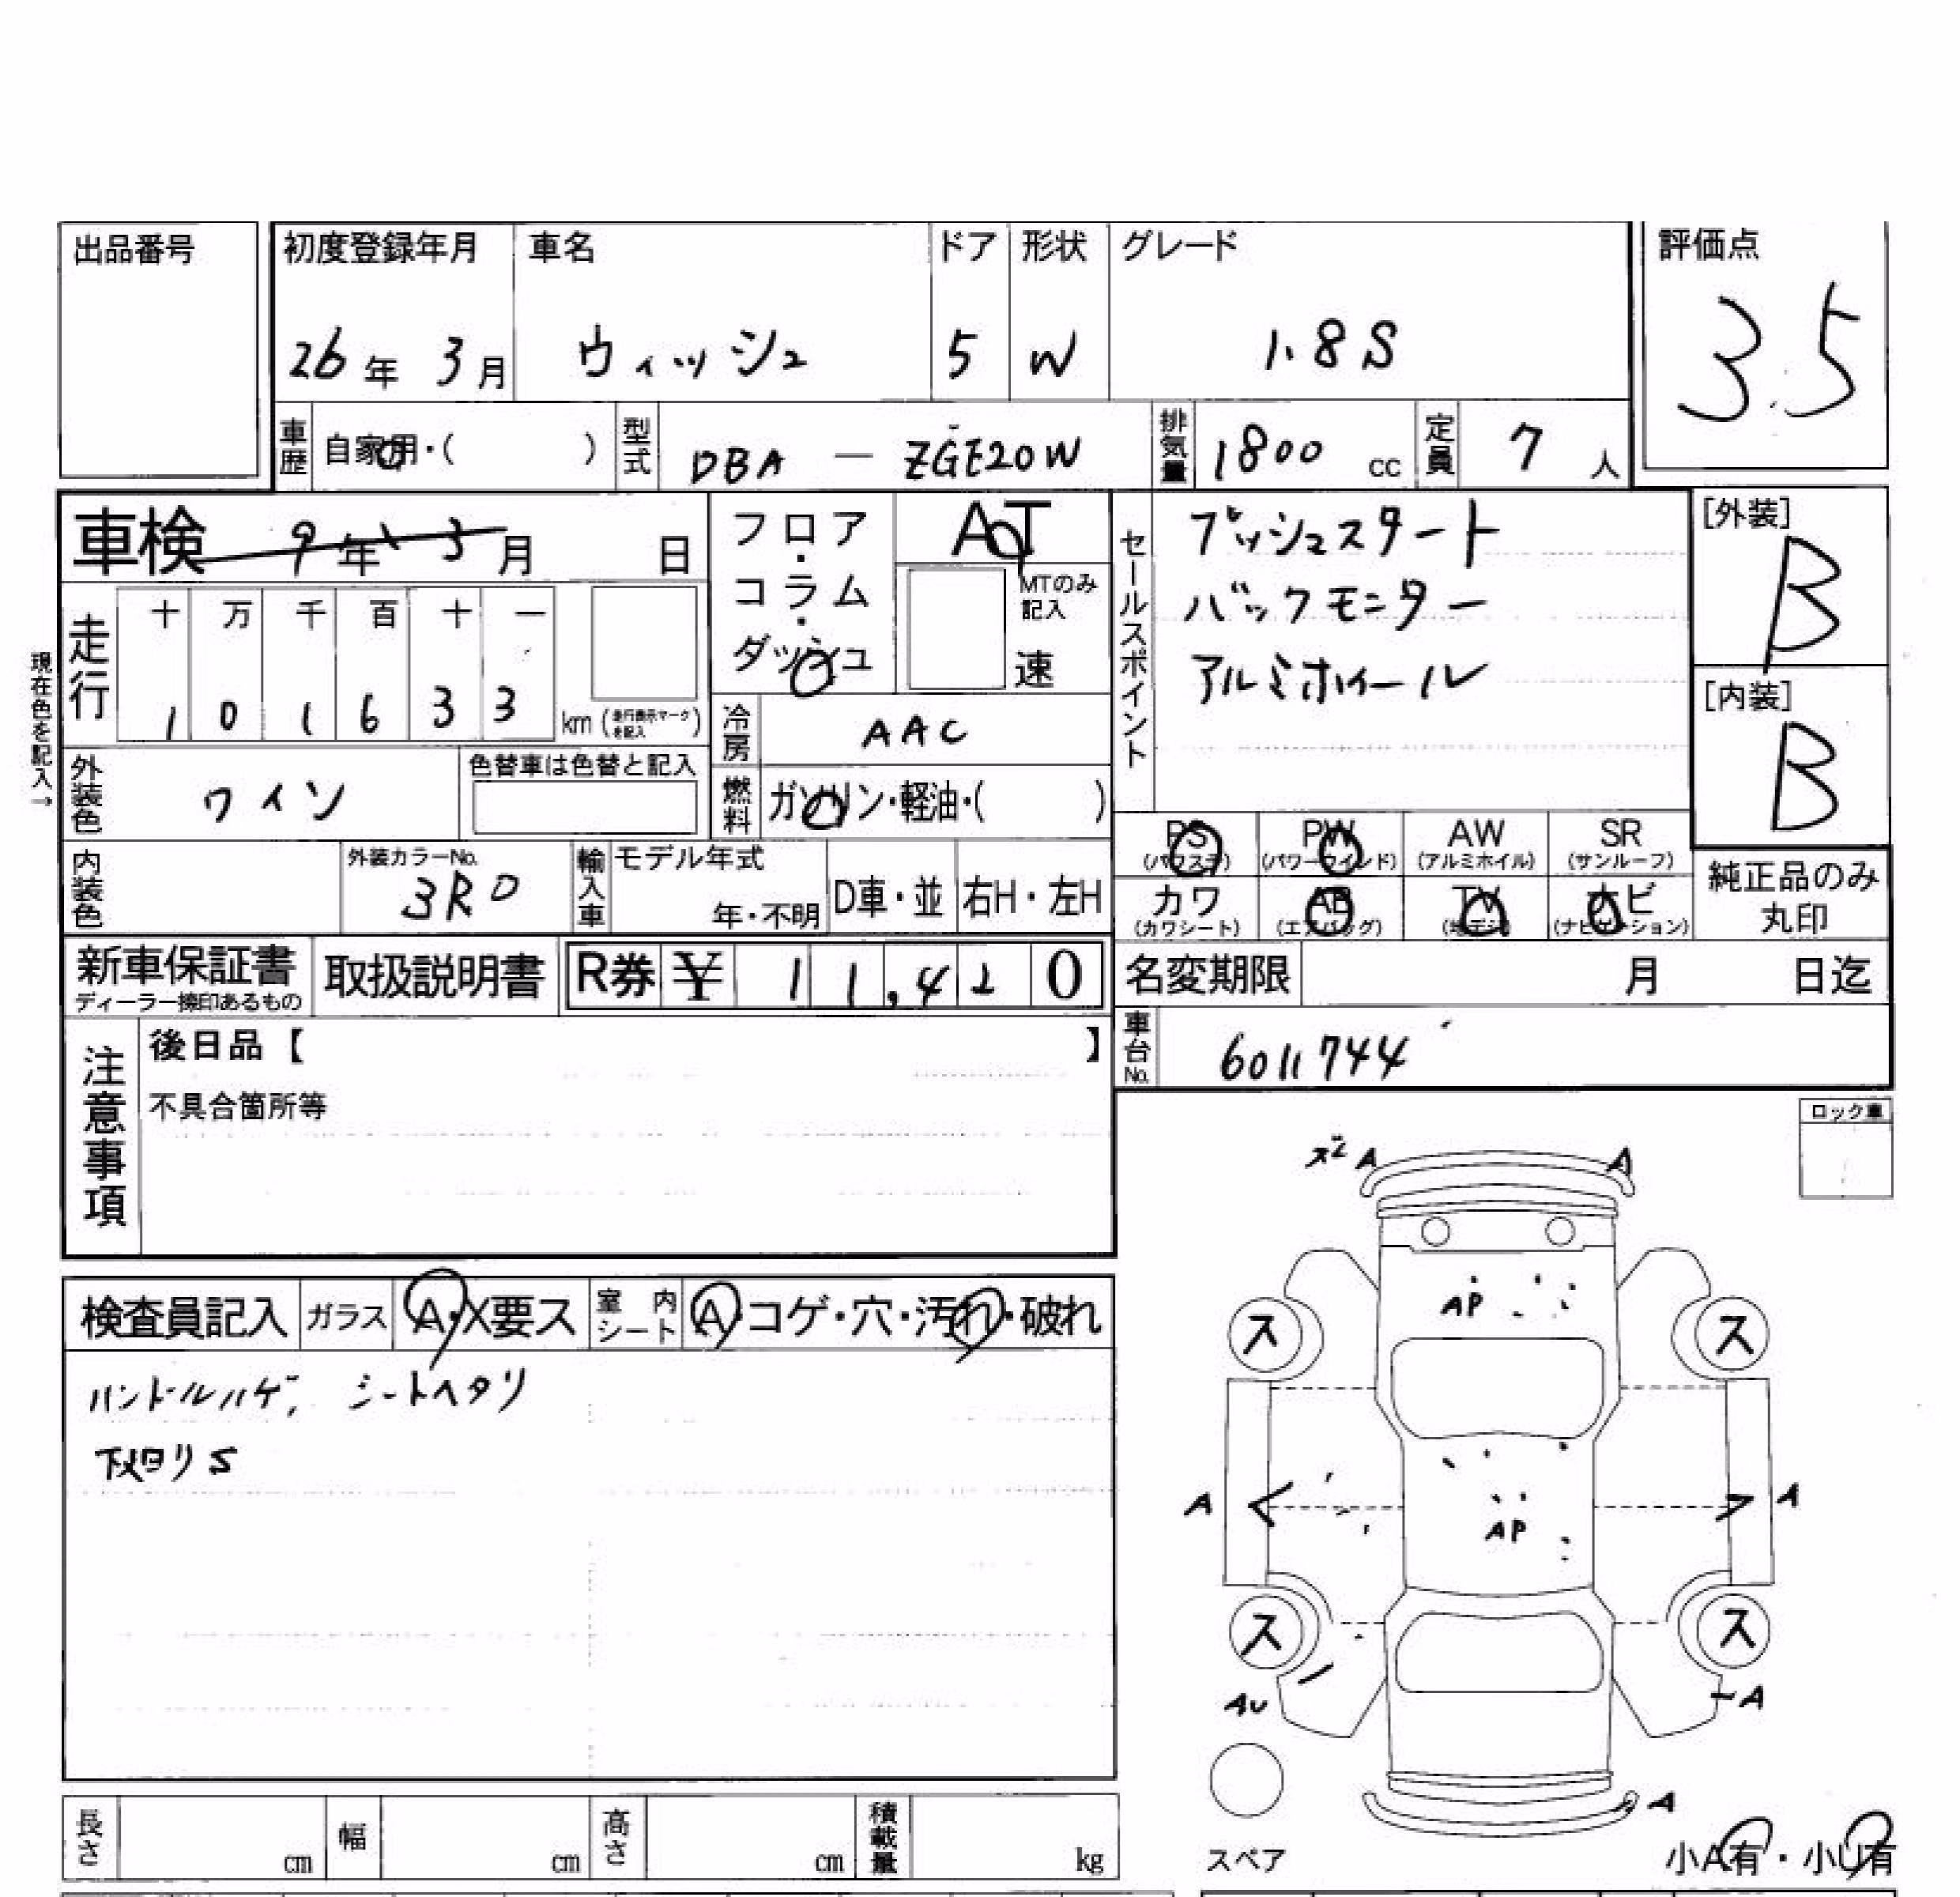 出品番号
初度登録年月
26年 3月
車名
ウィッシュ
ドア
5
形状
W
グレード
1.8S
評価点
3.5
車歴
自家用・( )
型式
DBA - ZGE20W
排気量
1800 cc
定員
7 人
車検 9年 3月 日
走行
十 万 千 百 十 一
1 0 1 6 3 3
km (走行表示マークを記入)
現在色を記入→
外装色
ワイン
色替車は色替と記入
内装色
外装カラーNo.
3R0
輸入車
モデル年式
年・不明
D車・並
右H・左H
フロア・コラム・ダッシュ
AT
MTのみ記入
速
冷房
AAC
燃料
ガソリン・軽油・( )
セールスポイント
プッシュスタート
バックモニター
アルミホイール
[外装]
B
[内装]
B
PS (パワステ)
PW (パワーウインド)
AW (アルミホイル)
SR (サンルーフ)
カワ (カワシート)
AB (エアバッグ)
TV (地デジ)
ナビ (ナビゲーション)
純正品のみ
丸印
新車保証書
ディーラー捺印あるもの
取扱説明書
R券 ¥ 11,420
名変期限 月 日迄
車台No.
6011744
注意事項
後日品【 】
不具合箇所等
ロック車
検査員記入
ガラス
A・X要ス
室内シート
A・コゲ・穴・汚れ・破れ
ハンドルハゲ, シートヘタリ
下回りS
A
A
AP
ス
ス
A
A
AP
ス
ス
AU
A
A
スペア
小A有・小U有
長さ cm
幅 cm
高さ cm
積載量 kg